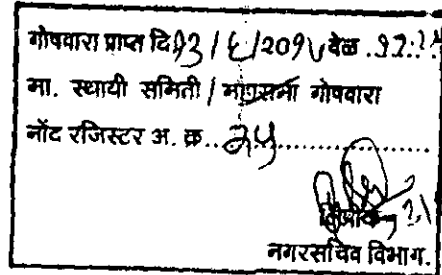 गोषवारा प्राप्त दि १३ / ६ / २०१५ वेळ .१२:
मा. स्थायी समिती / मा.प्र.सभा गोषवारा
नोंद रजिस्टर अ. क्र... २५
लिपीक
नगरसचिव विभाग.